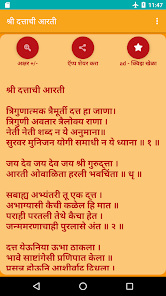 11:52
श्री दत्ताची आरती
अक्षर +/-
ऍप्प शेयर करा
ad - क्लिक खेळा
श्री दत्ताची आरती
त्रिगुणात्मक त्रैमूर्ती दत्त हा जाणा।
त्रिगुणी अवतार त्रैलोक्य राणा ।
नेती नेती शब्द न ये अनुमाना॥
सुरवर मुनिजन योगी समाधी न ये ध्याना ॥ १ ॥
जय देव जय देव जय श्री गुरुद्त्ता ।
आरती ओवाळिता हरली भवचिंता ॥ धृ ॥
सबाह्य अभ्यंतरी तू एक दत्त ।
अभाग्यासी कैची कळेल हि मात ॥
पराही परतली तेथे कैचा हेत ।
जन्ममरणाचाही पुरलासे अंत ॥ २ ॥
दत्त येऊनिया ऊभा ठाकला ।
भावे साष्टांगेसी प्रणिपात केला ॥
प्रसन्न होऊनि आशीर्वाद दिधला ।